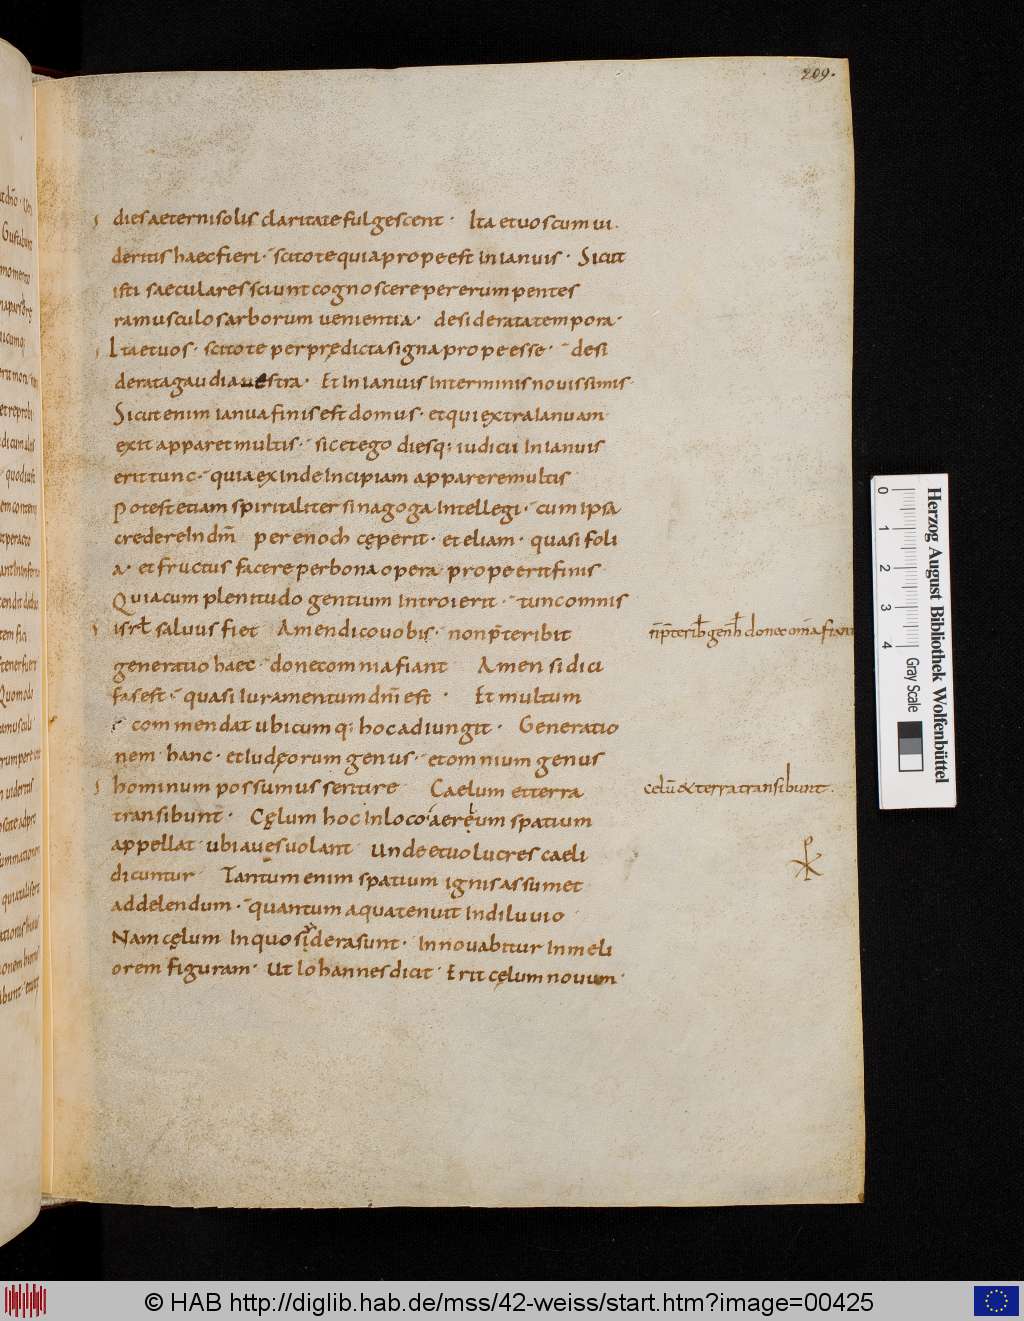 209.
dies aeterni solis claritate fulgescent · Ita et uos cum ui
deritis haec fieri · scitote quia prope est In ianuis · Sicut
isti saeculares sciunt cognoscere per erumpentes
ramusculos arborum uenientia · desiderata tempora ·
Ita et uos · scitote per prędicta signa prope esse · desi
derata gaudia uestra · Et In Ianuis In terminis nouissimis ·
Sicut enim ianua finis est domus · et qui extra Ianuam
exit apparet multis · sic et ego diesq; iudicii In Ianuis
erit tunc · quia ex Inde Incipiam apparere multis
Potest etiam spiritaliter sinagoga Intellegi · cum Ipsa
credere In dm̄ per enoch cęperit · et eliam · quasi foli
a · et fructus facere per bona opera prope erit finis
Quia cum plenitudo gentium Introierit · tunc omnis
isrl̄ saluus fiet Amen dico uobis · non p̄teribit
n̄ p̄terib̄ gen̄ h̄ donec om̄a fiant
generatio haec · donec omnia fiant Amen si dici
fas est · quasi Iuramentum dn̄i est · Et multum
commendat ubicumq; hoc adiungit · Generatio
nem hanc · et Iudęorum genus · et omnium genus
hominum possumus sentire Caelum et terra
celū & terra transibunt .
transibunt · Cęlum hoc In loco aereum spatium
appellat ubi aues uolant Unde et uolucres caeli
dicuntur Tantum enim spatium ignis assumet
ad delendum · quantum aqua tenuit In diluuio
Nam cęlum In quo sidera sunt · Innouabitur In meli
orem figuram · Ut Iohannes dicit · Erit cęlum nouum ·
Herzog August Bibliothek Wolfenbüttel
0 1 2 3 4
Gray Scale
© HAB http://diglib.hab.de/mss/42-weiss/start.htm?image=00425